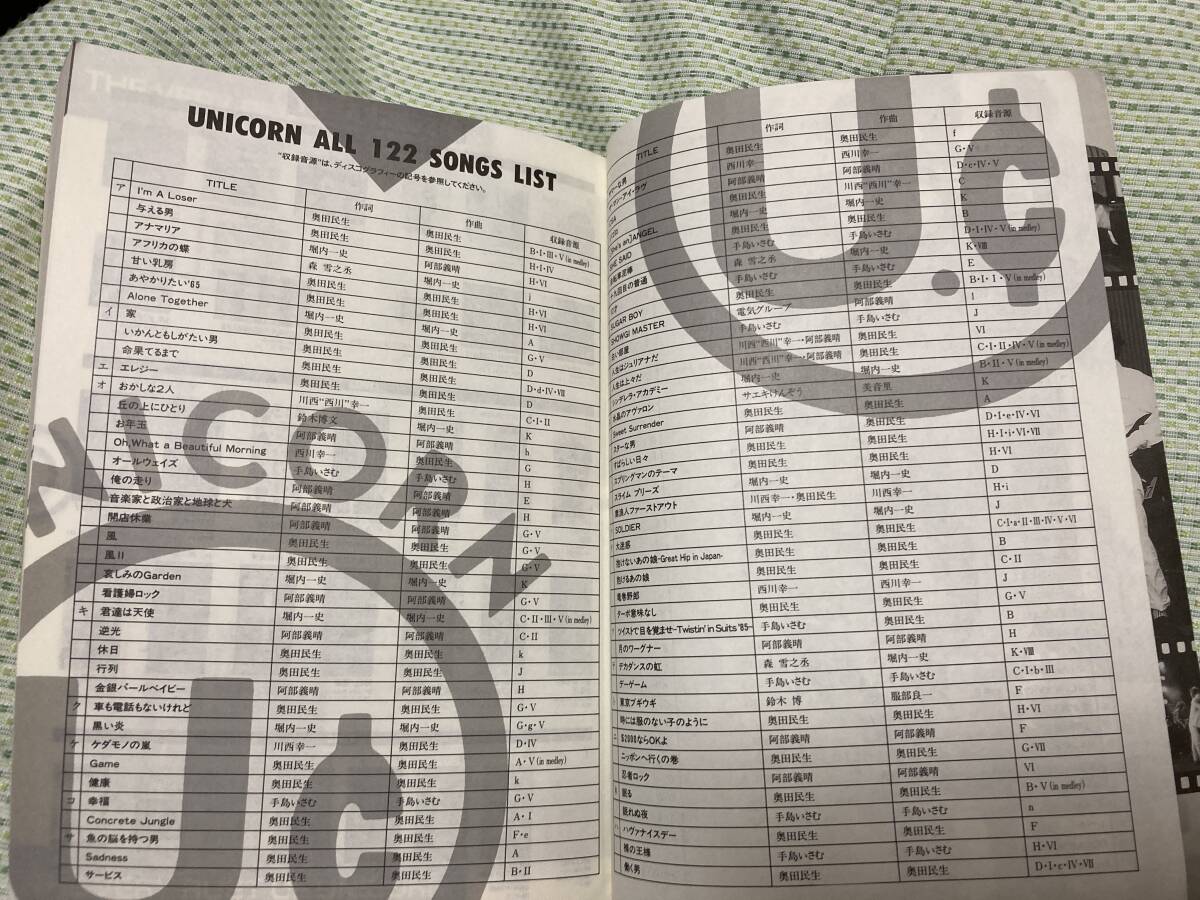 UNICORN ALL 122 SONGS LIST
"収録音源"は、ディスコグラフィーの記号を参照してください。
TITLE 作詞 作曲 収録音源
ア I'm A Loser 奥田民生 奥田民生 B・I・III・V (in medley)
与える男 奥田民生 奥田民生 H・I・IV
アナマリア 堀内一史 阿部義晴 H・VI
アフリカの蝶 森 雪之丞 堀内一史 j
甘い乳房 奥田民生 奥田民生 H・VI
あやかりたい'65 奥田民生 奥田民生 H・VI
Alone Together 堀内一史 堀内一史 A
イ 家 奥田民生 奥田民生 G・V
いかんともしがたい男 奥田民生 奥田民生 D
命果てるまで 奥田民生 奥田民生 D・d・IV・VII
エ エレジー 奥田民生 奥田民生 D
オ おかしな2人 川西"西川"幸一 奥田民生 C・I・II
丘の上にひとり 鈴木博文 堀内一史 K
お年玉 阿部義晴 阿部義晴 h
Oh,What a Beautiful Morning 西川幸一 奥田民生 G
オールウェイズ 手島いさむ 手島いさむ H
俺の走り 阿部義晴 阿部義晴 E
音楽家と政治家と地球と犬 阿部義晴 阿部義晴 H
開店休業 阿部義晴 奥田民生 G・V
風 奥田民生 奥田民生 G・V
風II 奥田民生 奥田民生 G・V
哀しみのGarden 堀内一史 堀内一史 K
看護婦ロック 阿部義晴 阿部義晴 G・V
キ 君達は天使 堀内一史 堀内一史 C・II・III・V (in medley)
逆光 阿部義晴 阿部義晴 C・II
休日 奥田民生 奥田民生 k
行列 奥田民生 奥田民生 J
金銀パールベイビー 阿部義晴 阿部義晴 H
ク 車も電話もないけれど 奥田民生 奥田民生 G・V
黒い炎 堀内一史 堀内一史 G・g・V
ケ ケダモノの嵐 川西幸一 奥田民生 D・IV
Game 奥田民生 奥田民生 A・V (in medley)
健康 奥田民生 奥田民生 k
コ 幸福 手島いさむ 手島いさむ G・V
Concrete Jungle 奥田民生 奥田民生 A・I
サ 魚の脳を持つ男 奥田民生 奥田民生 F・e
Sadness 奥田民生 奥田民生 A
サービス 奥田民生 奥田民生 B・II
UNICORN
U.C
TITLE 作詞 作曲 収録音源
な男 奥田民生 奥田民生 f
アイ・ラヴ 西川幸一 西川幸一 G・V
阿部義晴 阿部義晴 D・c・IV・V
奥田民生 川西"西川"幸一 C
[She's an]ANGEL 堀内一史 堀内一史 K
SHE SAID 奥田民生 奥田民生 B
自転車泥棒 手島いさむ 手島いさむ D・I・IV・V (in medley)
十九回目の普通 森 雪之丞 奥田民生 K・VIII
手島いさむ 手島いさむ E
SUGAR BOY 奥田民生 奥田民生 B・I・I・V (in medley)
SHOWGI MASTER 電気グルーヴ 阿部義晴 l
白い部屋 手島いさむ 手島いさむ J
人生はジュリアナだ 川西"西川"幸一・阿部義晴 奥田民生 VI
人生は上々だ 川西"西川"幸一・阿部義晴 奥田民生 C・I・II・IV・V (in medley)
シンデレラ・アカデミー 堀内一史 堀内一史 B・II・V (in medley)
水晶のアヴァロン サエキけんぞう 美音里 K
Sweet Surrender 奥田民生 奥田民生 A
スターな男 奥田民生 奥田民生 D・I・e・IV・VI
すばらしい日々 奥田民生 奥田民生 H・I・i・VI・VII
スプリングマンのテーマ 奥田民生 堀内一史 H・VI
スライム プリーズ 奥田民生 堀内一史 D
素浪人ファーストアウト 川西幸一・奥田民生 西川幸一 H・i
SOLDIER 堀内一史 堀内一史 J
大迷惑 奥田民生 奥田民生 C・I・a・II・III・IV・V・VI
抱けないあの娘-Great Hip in Japan- 奥田民生 奥田民生 B
抱けるあの娘 奥田民生 奥田民生 C・II
竜巻野郎 西川幸一 西川幸一 J
ターボ意味なし 奥田民生 奥田民生 G・V
ツイストで目を覚ませ-Twistin' in Suits '85- 手島いさむ 奥田民生 B
月のワーグナー 阿部義晴 奥田民生 H
デカダンスの虹 森 雪之丞 堀内一史 K・VIII
デーゲーム 手島いさむ 手島いさむ C・I・b・III
東京ブギウギ 鈴木 博 服部良一 F
時には服のない子のように 奥田民生 奥田民生 H・VI
$2000ならOKよ 阿部義晴 阿部義晴 F
ニッポンへ行くの巻 奥田民生 奥田民生 G・VII
忍者ロック 阿部義晴 阿部義晴 VI
眠る 奥田民生 奥田民生 B・V (in medley)
眠れぬ夜 手島いさむ 手島いさむ n
ハヴァナイスデー 奥田民生 奥田民生 F
裸の王様 手島いさむ 手島いさむ H・VI
働く男 奥田民生 奥田民生 D・I・e・IV・VII